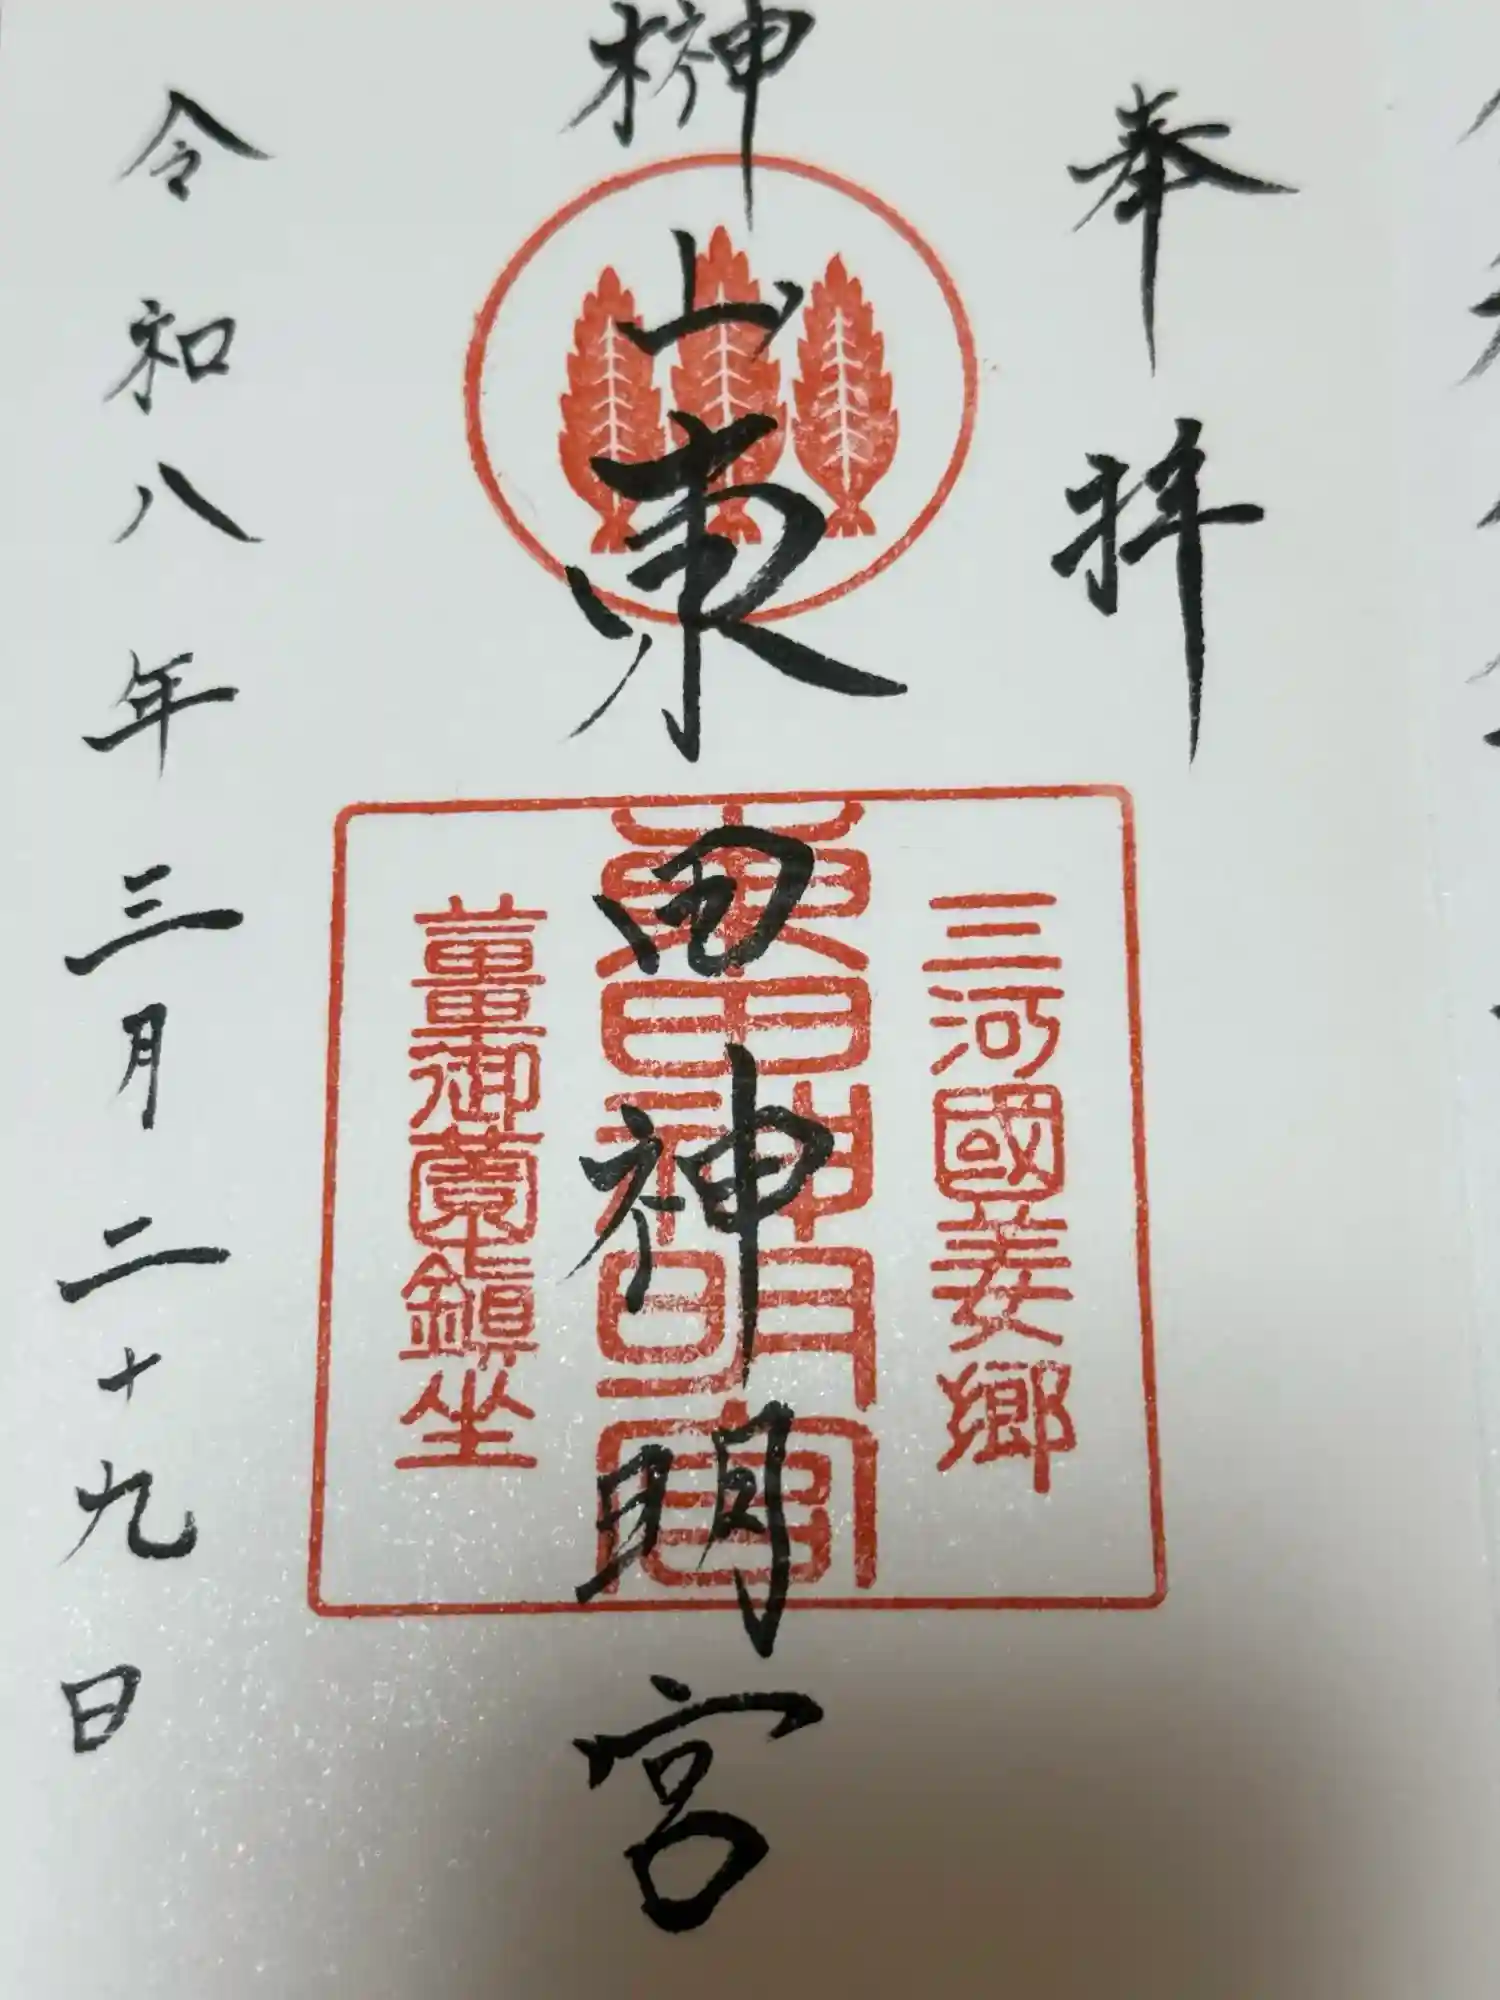 奉拝
榊山東田神明宮
三河國姜郷
東田神明宮
薑御薗鎮坐
令和八年三月二十九日